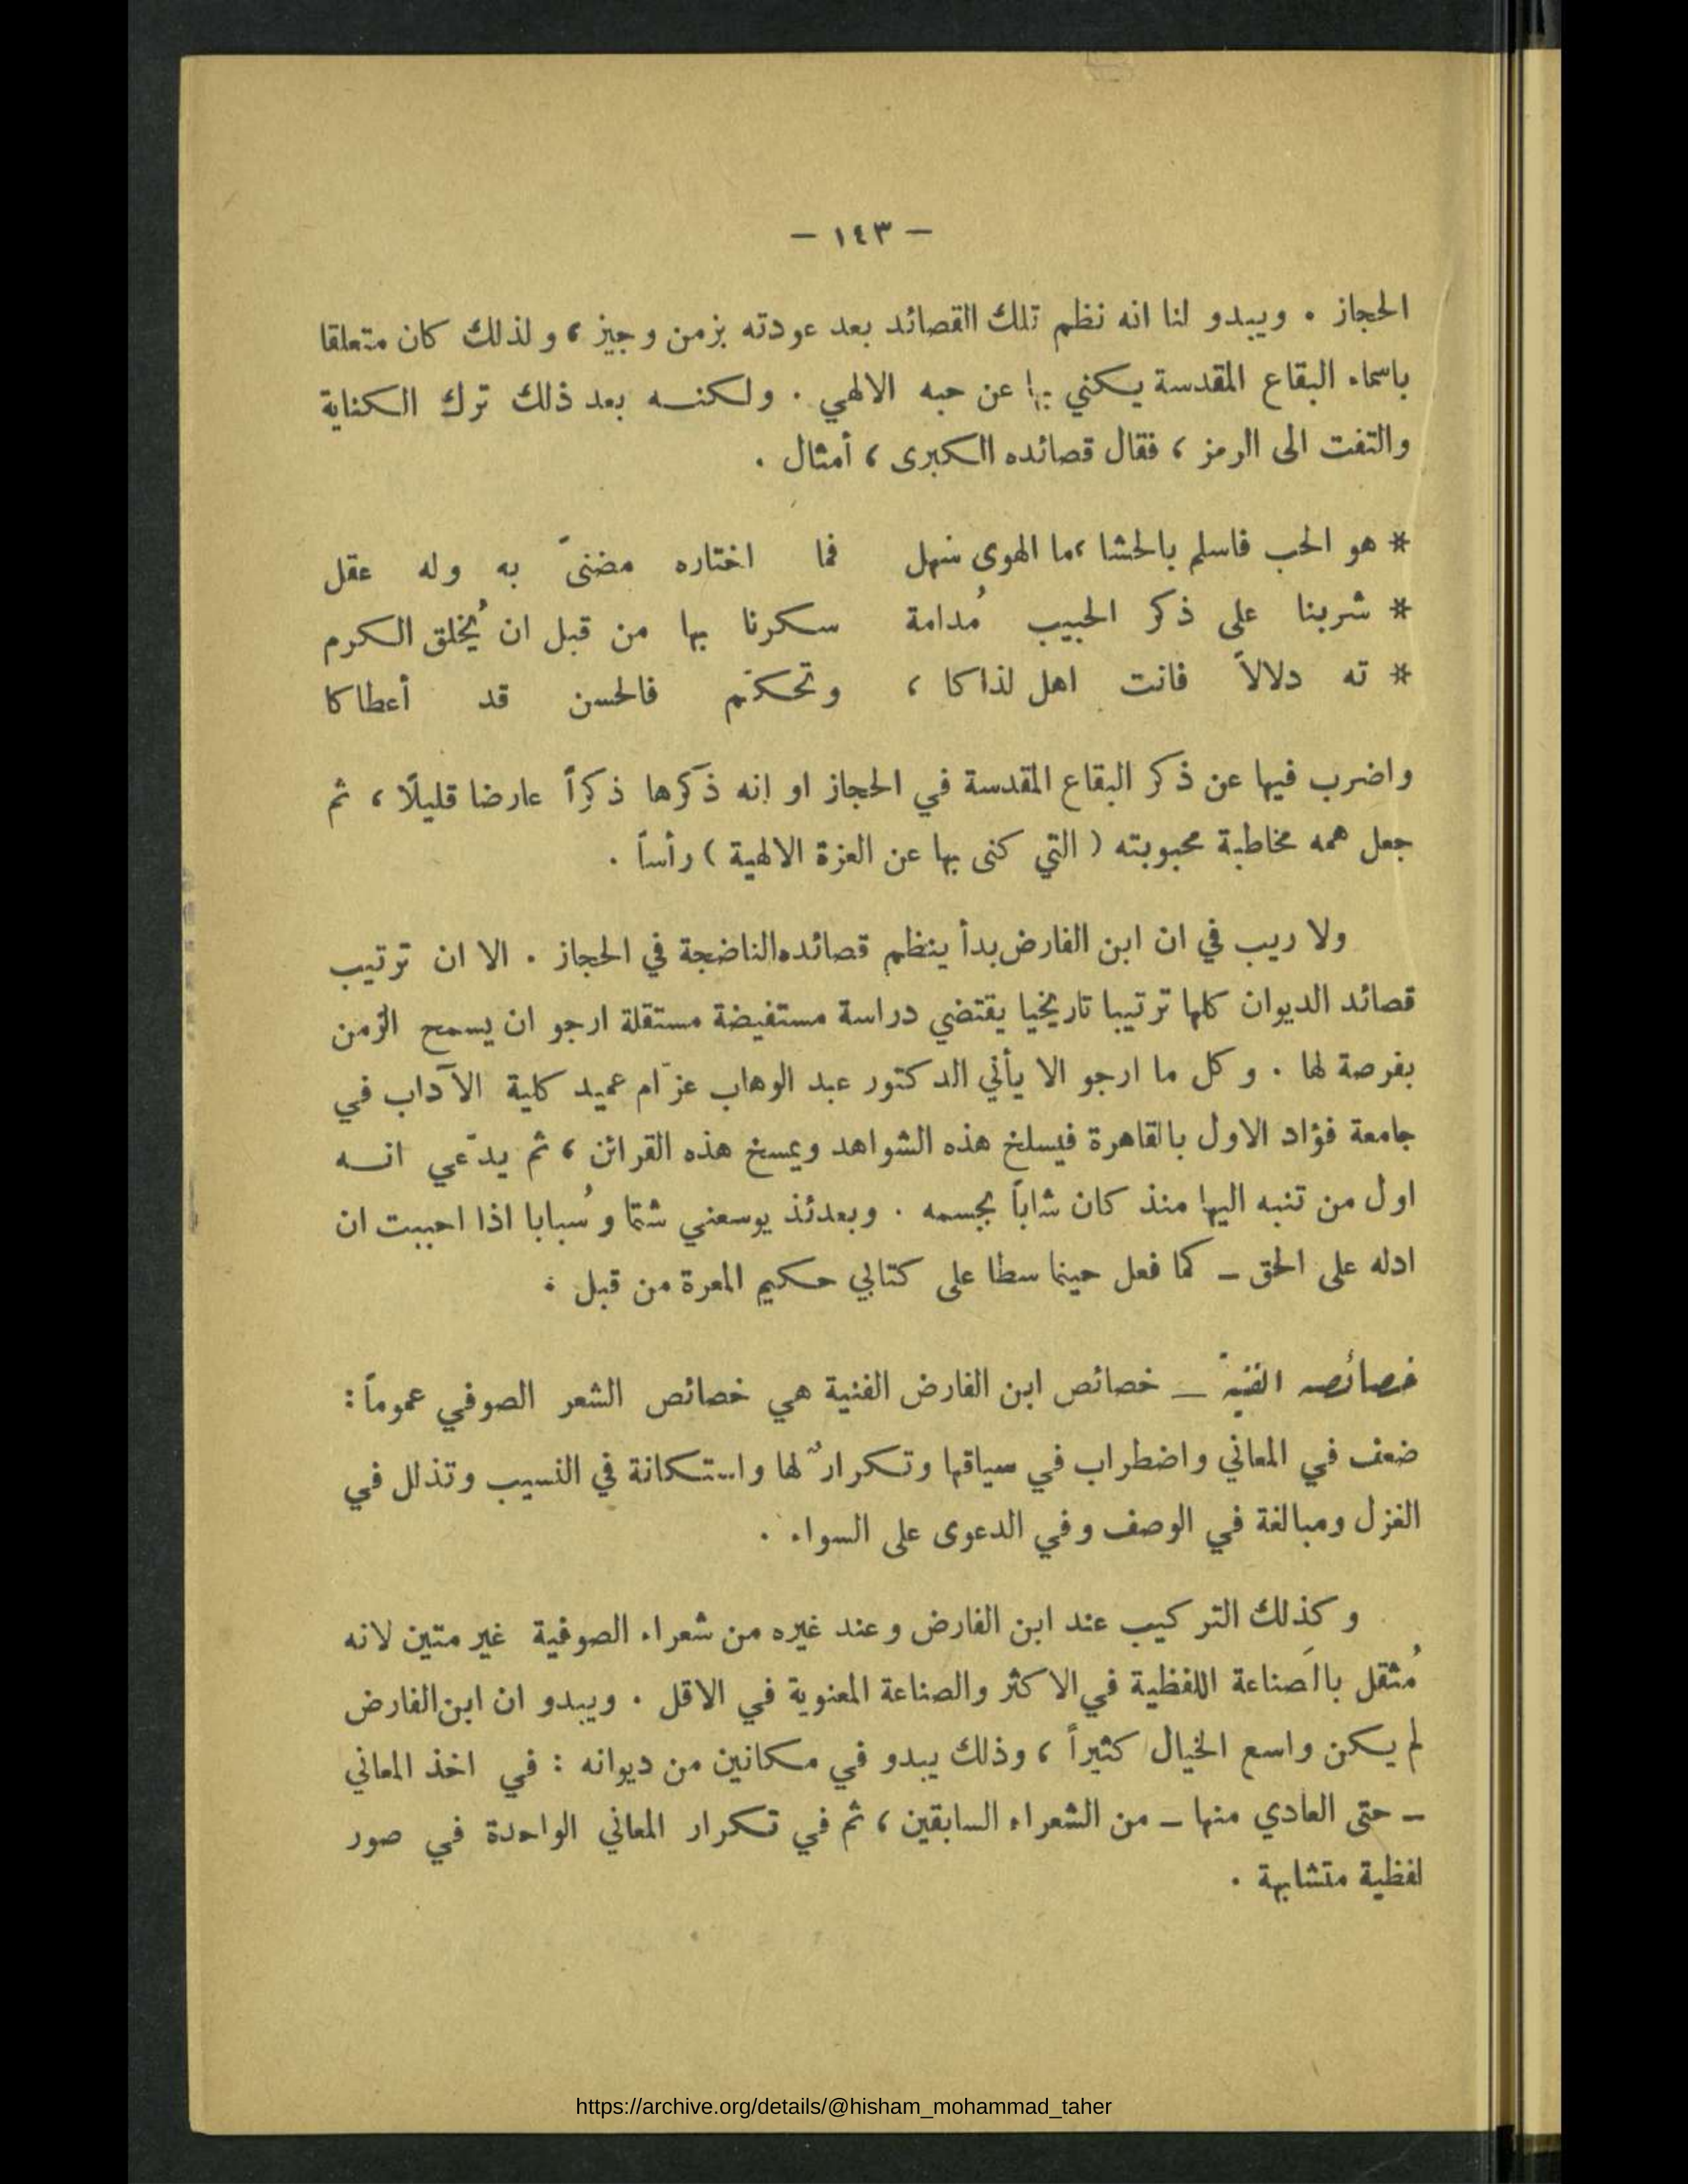 — ١٤٣ —
الحجاز . ويبدو لنا انه نظم تلك القصائد بعد عودته بزمن وجيز ، ولذلك كان متعلقا
باسماء البقاع المقدسة يكني بها عن حبه الالهي . ولكنه بعد ذلك ترك الكناية
والتفت الى الرمز ، فقال قصائده الكبرى ، أمثال .
* هو الحب فاسلم بالحشا ،ما الهوى سهل فما اختاره مضنىً به وله عقل
* شربنا على ذكر الحبيب مُدامة سكرنا بها من قبل ان يُخلق الكرم
* ته دلالاً فانت اهل لذاكا ، وتحكّم فالحسن قد أعطاكا
واضرب فيها عن ذكر البقاع المقدسة في الحجاز او انه ذكَرها ذكراً عارضا قليلًا ، ثم
جعل همه مخاطبة محبوبته ( التي كنى بها عن العزة الالهية ) رأساً .
ولا ريب في ان ابن الفارض بدأ ينظم قصائده الناضجة في الحجاز . الا ان ترتيب
قصائد الديوان كلها ترتيبا تاريخيا يقتضي دراسة مستفيضة مستقلة ارجو ان يسمح الزمن
بفرصة لها . وكل ما ارجو الا يأتي الدكتور عبد الوهاب عزّام عميد كلية الآداب في
جامعة فؤاد الاول بالقاهرة فيسلخ هذه الشواهد ويمسخ هذه القرائن ، ثم يدّعي انه
اول من تنبه اليها منذ كان شاباً بجسمه . وبعدئذ يوسعني شتما وسُبابا اذا احببت ان
ادله على الحق – كما فعل حينما سطا على كتابي حكيم المعرة من قبل .
خصائصه الفنيّة — خصائص ابن الفارض الفنية هي خصائص الشعر الصوفي عموماً :
ضعف في المعاني واضطراب في سياقها وتكرارٌ لها واستكانة في النسيب وتذلل في
الغزل ومبالغة في الوصف وفي الدعوى على السواء .
وكذلك التركيب عند ابن الفارض وعند غيره من شعراء الصوفية غير متين لانه
مُثقل بالصَناعة اللفظية في الاكثر والصناعة المعنوية في الاقل . ويبدو ان ابن الفارض
لم يكن واسع الخيال كثيراً ، وذلك يبدو في مكانين من ديوانه : في اخذ المعاني
– حتى العادي منها – من الشعراء السابقين ، ثم في تكرار المعاني الواحدة في صور
لفظية متشابهة .
https://archive.org/details/@hisham_mohammad_taher